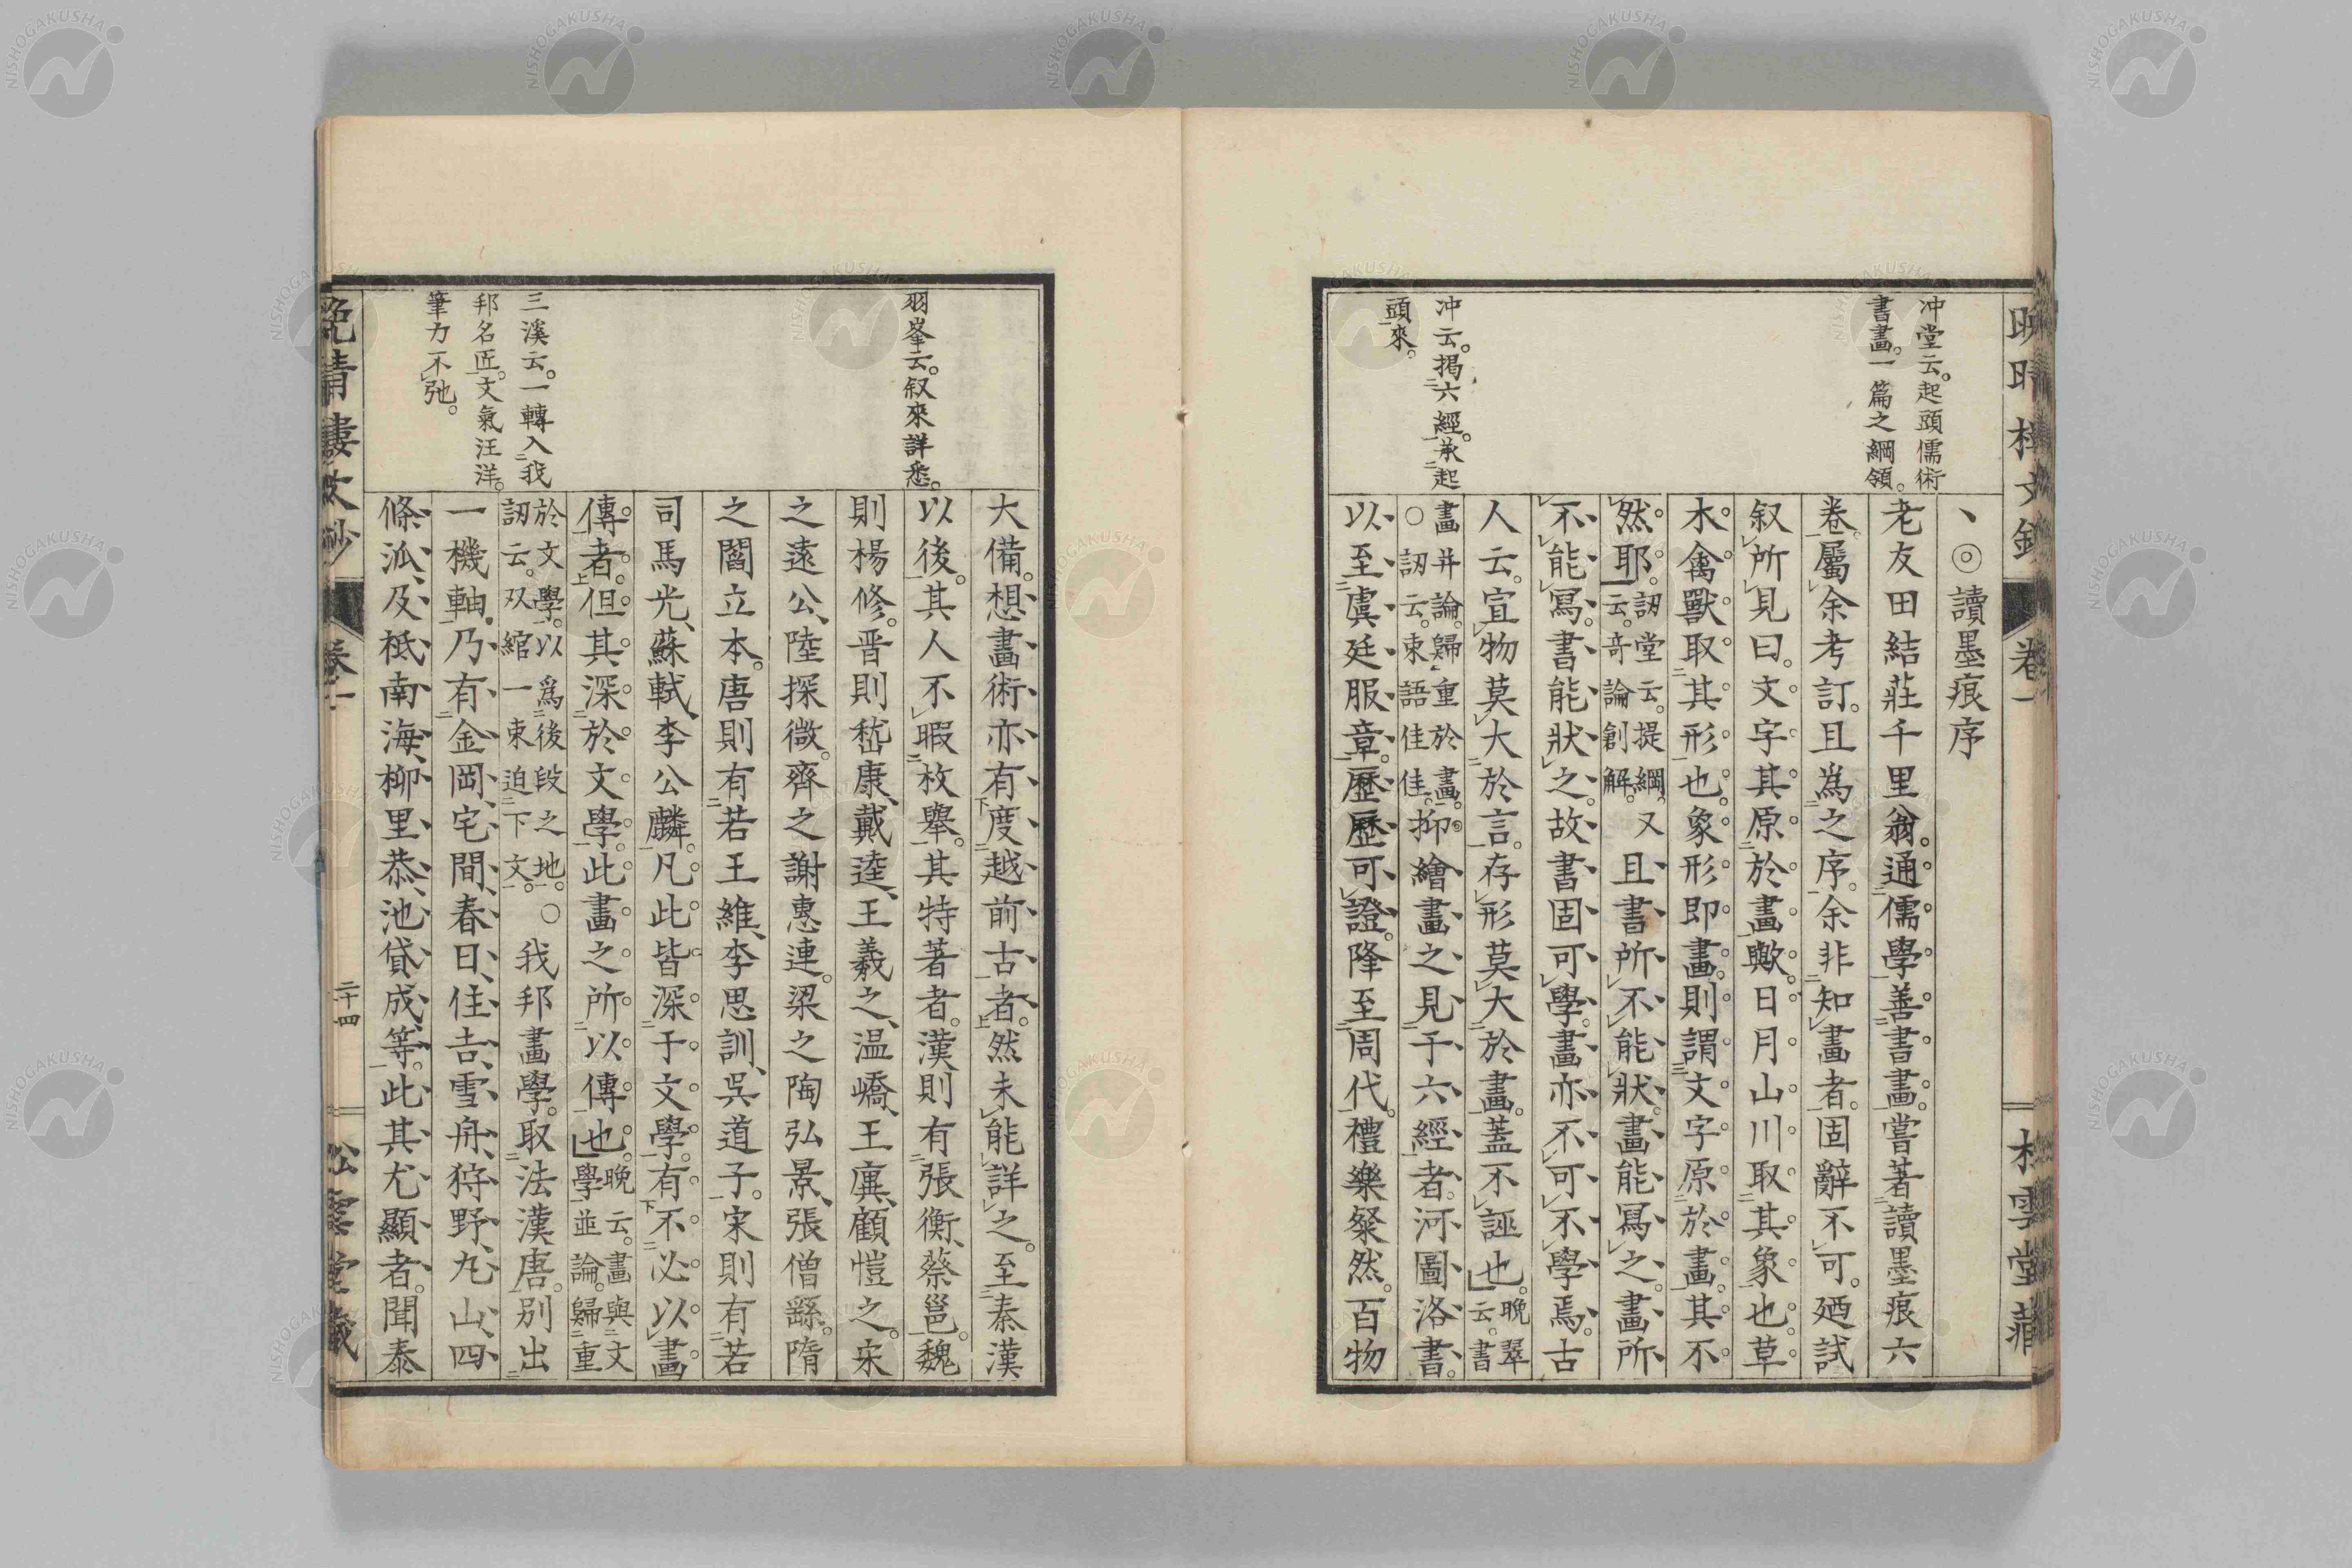 冲堂云。起頭儒術
書畫。一篇之綱領。
冲云。揭六經。承起
頭來。
、◎讀墨痕序
老友田結莊千里翁。通儒學。善書畫。嘗著讀墨痕六
卷。屬余考訂。且爲之序。余非知畫者。固辭不可。廼試
叙所見曰。文字其原於畫歟。日月山川取其象也。草
木禽獸取其形也。象形即畫。則謂文字原於畫。其不
然耶。訒堂云。提綱。又
云。奇論創解。且書所不能狀。畫能寫之。畫所
不能寫。書能狀之。故書固可學。畫亦不可不學焉。古
人云。宣物莫大於言。存形莫大於畫。蓋不誣也。晩翠
云。書
畫并論。歸重於畫。
○訒云。束語佳佳。抑繪畫之見于六經者。河圖洛書。
以至虞廷服章。歷歷可證。降至周代。禮樂粲然。百物
卷一
羽峯云。叙來詳悉。
三溪云。一轉入我
邦名匠。文氣汪洋。
筆力不弛。
大備。想畫術亦有度越前古者。然未能詳之。至秦漢
以後。其人不暇枚舉。其特著者。漢則有張衡、蔡邕。魏
則楊修。晋則嵇康、戴逵、王羲之、温嶠、王廙、顧愷之。宋
之遠公、陸探微。齊之謝惠連。梁之陶弘景、張僧繇。隋
之閻立本。唐則有若王維、李思訓、呉道子。宋則有若
司馬光、蘇軾、李公麟。凡此皆深于文學。有不必以畫
傳者。但其深於文學。此畫之所以傳也。晩云。畫與文
學並論。歸重
於文學。以爲後段之地。○
訒云。双綰一束迫下文。我邦畫學。取法漢唐。別出
一機軸。乃有金岡、宅間、春日、住吉、雪舟、狩野、丸山、四
條、泒及祗南海、柳里恭、池貸成等。此其尤顯者。聞泰
晩晴樓文鈔
卷一
二十四
松雲堂藏